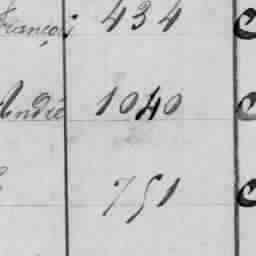 François 434
André 1040
751